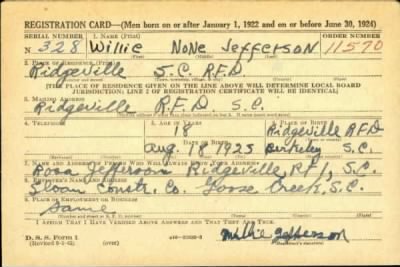 REGISTRATION CARD—(Men born on or after January 1, 1922 and on or before June 30, 1924)
SERIAL NUMBER 1. NAME (Print) ORDER NUMBER
N 328 Willie None Jefferson 11570
(First) (Middle) (Last)
2. PLACE OF RESIDENCE (Print)
Ridgeville S.C. R.F.D
[THE PLACE OF RESIDENCE GIVEN ON THE LINE ABOVE WILL DETERMINE LOCAL BOARD
JURISDICTION; LINE 2 OF REGISTRATION CERTIFICATE WILL BE IDENTICAL]
3. MAILING ADDRESS
Ridgeville R.F.D. S.C.
4. TELEPHONE 5. AGE IN YEARS 6. PLACE OF BIRTH
18 Ridgeville R.F.D
DATE OF BIRTH
Aug. 18 1925 Berkeley S.C.
7. NAME AND ADDRESS OF PERSON WHO WILL ALWAYS KNOW YOUR ADDRESS
Rosa Jefferson Ridgeville, RF1, S.C.
8. EMPLOYER'S NAME AND ADDRESS
Sloan Constr. Co. Goose Creek, S.C.
9. PLACE OF EMPLOYMENT OR BUSINESS
Same
I AFFIRM THAT I HAVE VERIFIED ABOVE ANSWERS AND THAT THEY ARE TRUE.
D. S. S. Form 1
(over)
Willie Jefferson